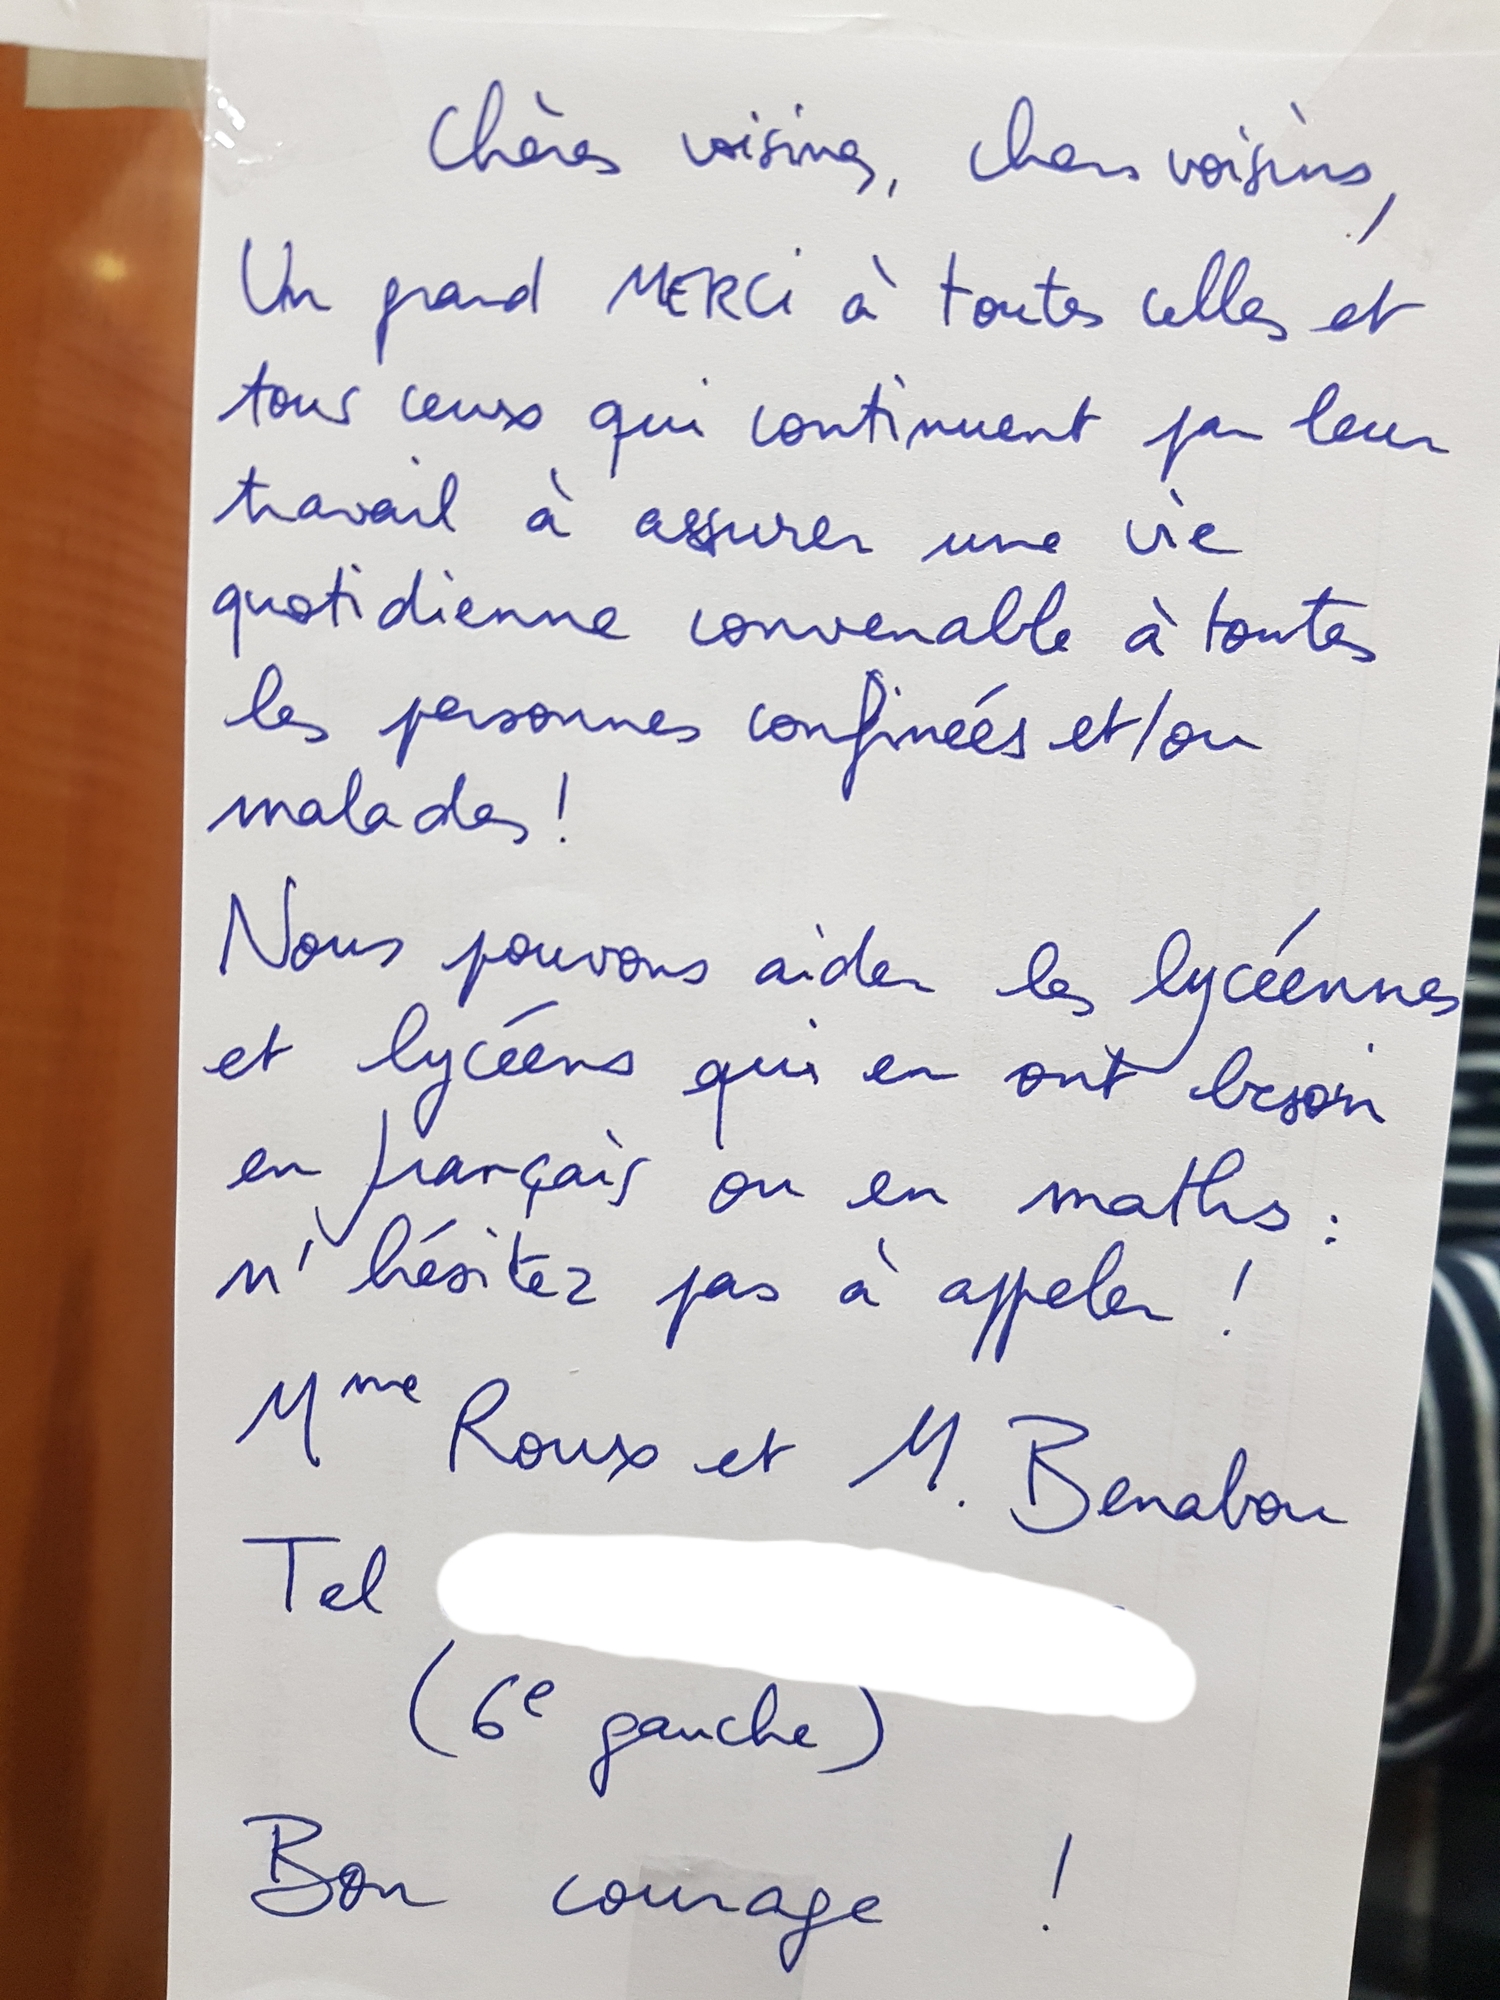 Chères voisines, chers voisins,
Un grand MERCi à toutes celles et
tous ceux qui continuent par leur
travail à assurer une vie
quotidienne convenable à toutes
les personnes confinées et/ou
malades !
Nous pouvons aider les lycéennes
et lycéens qui en ont besoin
en français ou en maths :
n'hésitez pas à appeler !
Mme Roux et M. Benabou
Tel
(6e gauche)
Bon courage !